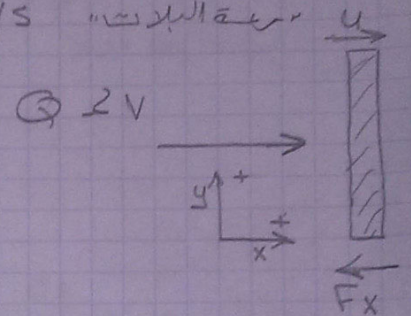 "سرعة البلات"
u
Q 2 V
y +
x +
Fx